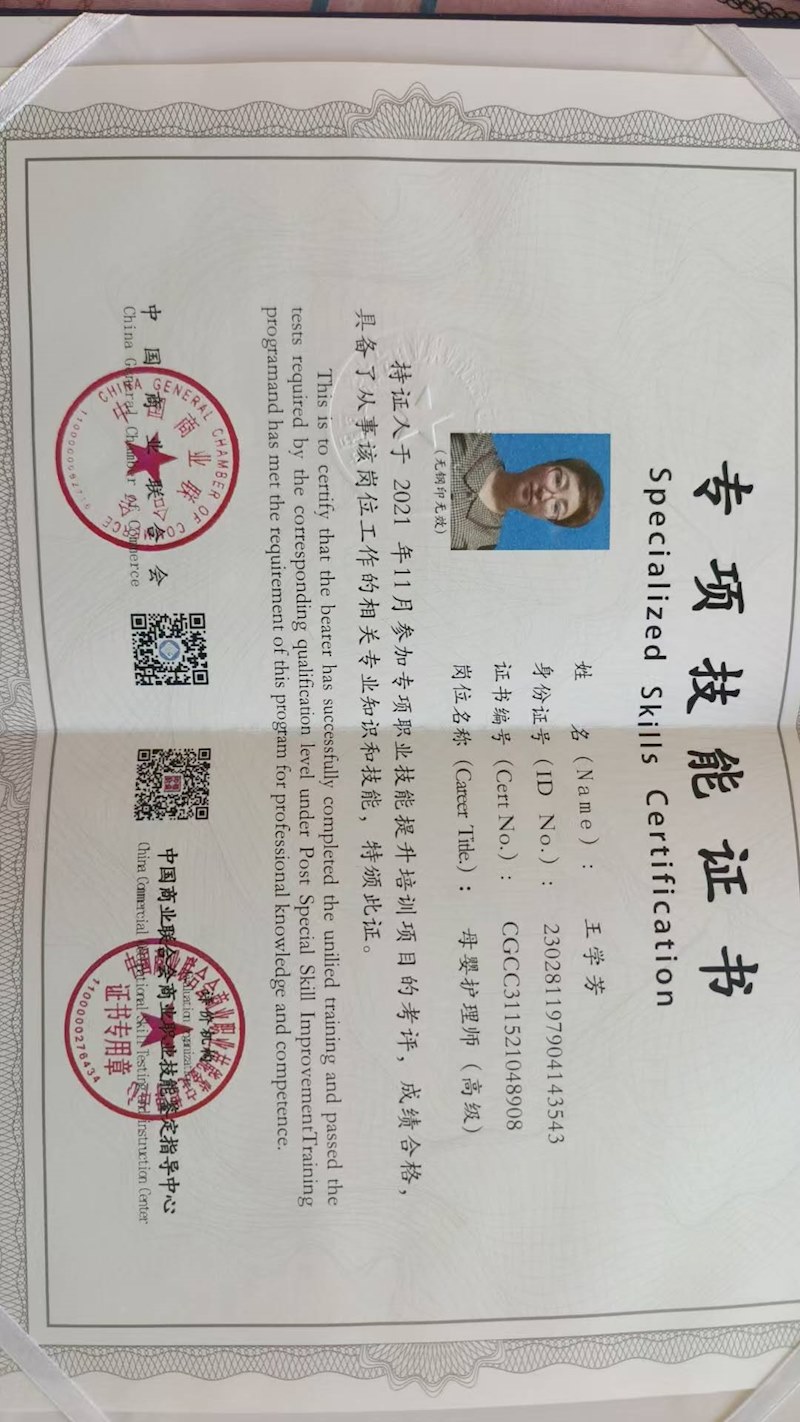 专项技能证书
Specialized Skills Certification
姓 名 (Name) : 王学芳
身份证号 (ID No.) : 230281197904143543
证书编号 (Cert No.) : CGCC311521048908
岗位名称 (Career Title.) : 母婴护理师（高级）
(无钢印无效)
持证人于 2021 年11月参加专项职业技能提升培训项目的考评，成绩合格，
具备了从事该岗位工作的相关专业知识和技能，特颁此证。
This is to certify that the bearer has successfully completed the unified training and passed the
tests required by the corresponding qualification level under Post Special Skill ImprovementTraining
programand has met the requirement of this program for professional knowledge and competence.
中国商业联合会
China General Chamber of Commerce
CHINA GENERAL CHAMBER OF COMMERCE
评价机构
中国商业联合会商业职业技能鉴定指导中心
China Commercial Vocational Skill Testing and Instruction Center
证书专用章
1100000276434